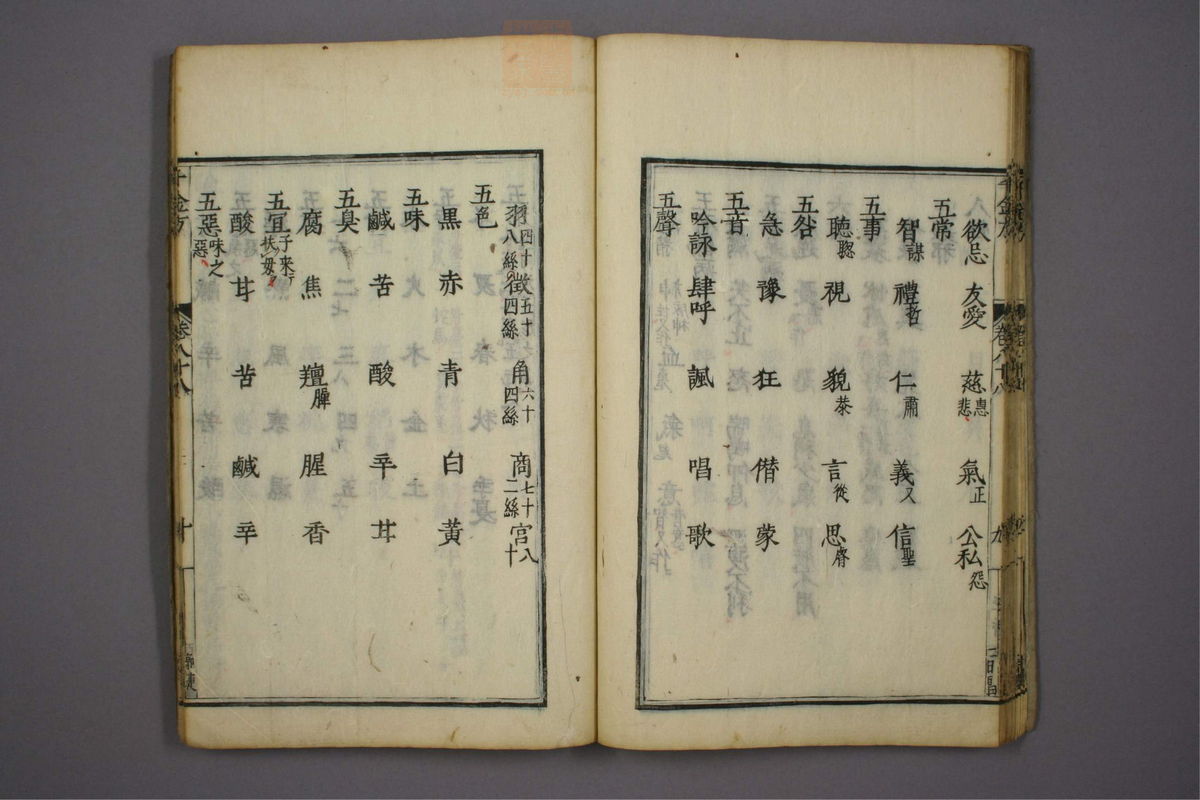 欲忌 友愛 慈惠悲 氣正 公私怨
五常
智謀 禮哲 仁肅 義乂 信聖
五事
聽聰 視 貌恭 言從 思睿
五咎
急 豫 狂 僭 蒙
五音
吟詠 肆呼 諷 唱 歌
五聲
羽四十八絲 徵五十四絲 角六十四絲 商七十二絲 宮八十
五色
黑 赤 青 白 黃
五味
鹹 苦 酸 辛 甘
五臭
腐 焦 羶臊 腥 香
五宜子來扶母
酸 甘 苦 鹹 辛
五惡味之惡
千金方 卷八十八 十